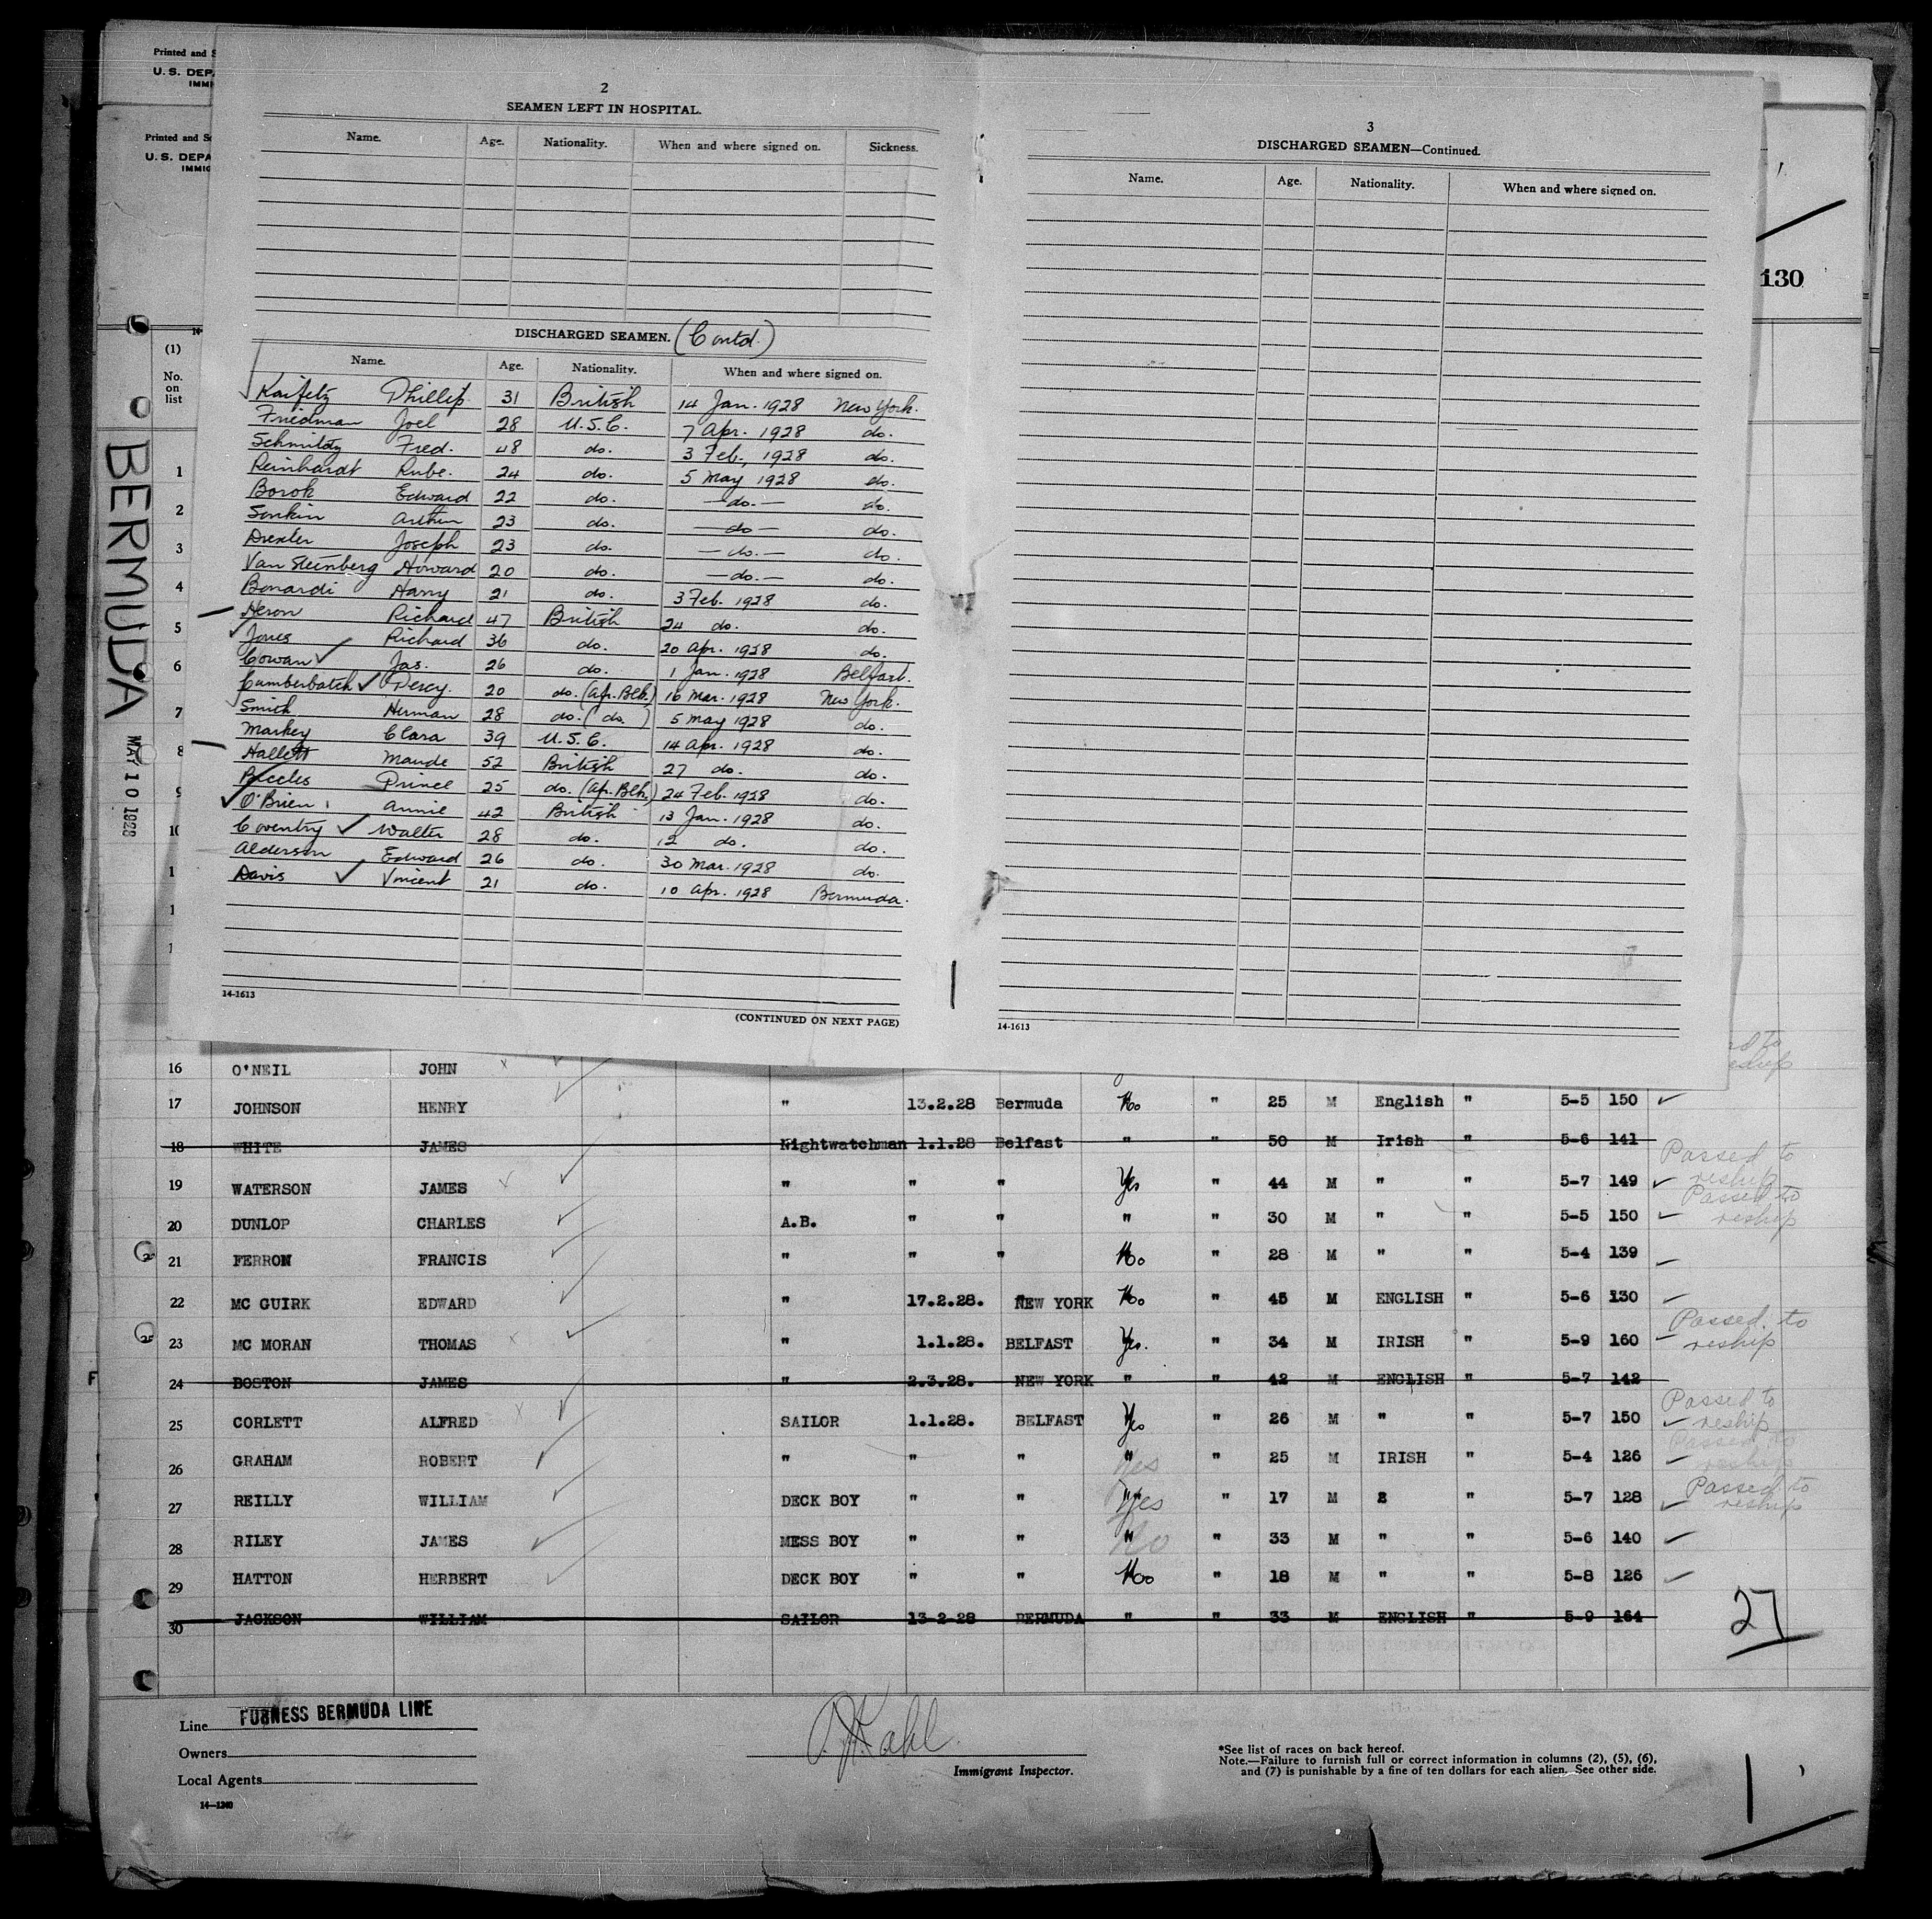 Printed and S
U. S. DEPA
IMMI
Printed and Se
U. S. DEPA
IMMIG
2
SEAMEN LEFT IN HOSPITAL.
Name. Age. Nationality. When and where signed on. Sickness.
DISCHARGED SEAMEN. (Contd.)
Name. Age. Nationality. When and where signed on.
Kaifetz Phillip 31 British 14 Jan. 1928 New York.
Friedman Joel 28 U.S.C. 7 Apr. 1928 do.
Schmidty Fred. 48 do. 3 Feb. 1928 do.
Reinhardt Rube. 24 do. 5 May 1928 do.
Borok Edward 22 do. —do.— do.
Sonkin Arthur 23 do. —do— do.
Drexler Joseph 23 do. —do.— do.
Van Steinberg Howard 20 do. —do.— do.
Bonardi Harry 21 do. 3 Feb. 1928 do.
Heron Richard 47 British 24 do. do.
Jones Richard 36 do. 20 Apr. 1928 do.
Cowan Jas. 26 do. 1 Jan. 1928 Belfast.
Cumberbatch Percy. 20 do. (Af. Blk.) 16 Mar. 1928 New York.
Smith Herman 28 do. (do.) 5 May 1928 do.
Markey Clara 39 U.S.C. 14 Apr. 1928 do.
Hallett Maude 52 British 27 do. do.
Beccles Prince 25 do. (Af. Blk.) 24 Feb. 1928 do.
O'Brien Annie 42 British 13 Jan. 1928 do.
Coventry Walter 28 do. 12 do. do.
Alderson Edward 26 do. 30 Mar. 1928 do.
Davis Vincent 21 do. 10 Apr. 1928 Bermuda.
14-1613
(CONTINUED ON NEXT PAGE)
3
DISCHARGED SEAMEN—Continued.
Name. Age. Nationality. When and where signed on.
14-1613
130
(1)
No.
on
list
1
2
3
4
5
6
7
8
9
10
1
1
1
BERMUDA
MAY 10 1928
16 O'NEIL JOHN
17 JOHNSON HENRY " 13.2.28 Bermuda No " 25 M English " 5-5 150
18 WHITE JAMES Nightwatchman 1.1.28 Belfast " " 50 M Irish " 5-6 141
19 WATERSON JAMES " " " Yes " 44 M " " 5-7 149 Passed to reship
20 DUNLOP CHARLES A.B. " " " " 30 M " " 5-5 150 Passed to reship
21 FERRON FRANCIS " " " No " 28 M " " 5-4 139
22 MC GUIRK EDWARD " 17.2.28. NEW YORK No " 45 M ENGLISH " 5-6 130
23 MC MORAN THOMAS " 1.1.28. BELFAST Yes. " 34 M IRISH " 5-9 160 Passed to reship
24 BOSTON JAMES " 2.3.28. NEW YORK " " 42 M ENGLISH " 5-7 142
25 CORLETT ALFRED SAILOR 1.1.28. BELFAST Yes " 26 M " " 5-7 150 Passed to reship
26 GRAHAM ROBERT " " " " Yes " 25 M IRISH " 5-4 126 Passed to reship
27 REILLY WILLIAM DECK BOY " " " Yes " 17 M 2 " 5-7 128 Passed to reship
28 RILEY JAMES MESS BOY " " " No " 33 M " " 5-6 140
29 HATTON HERBERT DECK BOY " " No " 18 M " " 5-8 126
30 JACKSON WILLIAM SAILOR 13-2-28 BERMUDA " " 33 M ENGLISH " 5-9 164
27
Line FURNESS BERMUDA LINE
Owners
Local Agents
14—1240
Immigrant Inspector.
*See list of races on back hereof.
Note.—Failure to furnish full or correct information in columns (2), (5), (6),
and (7) is punishable by a fine of ten dollars for each alien. See other side.